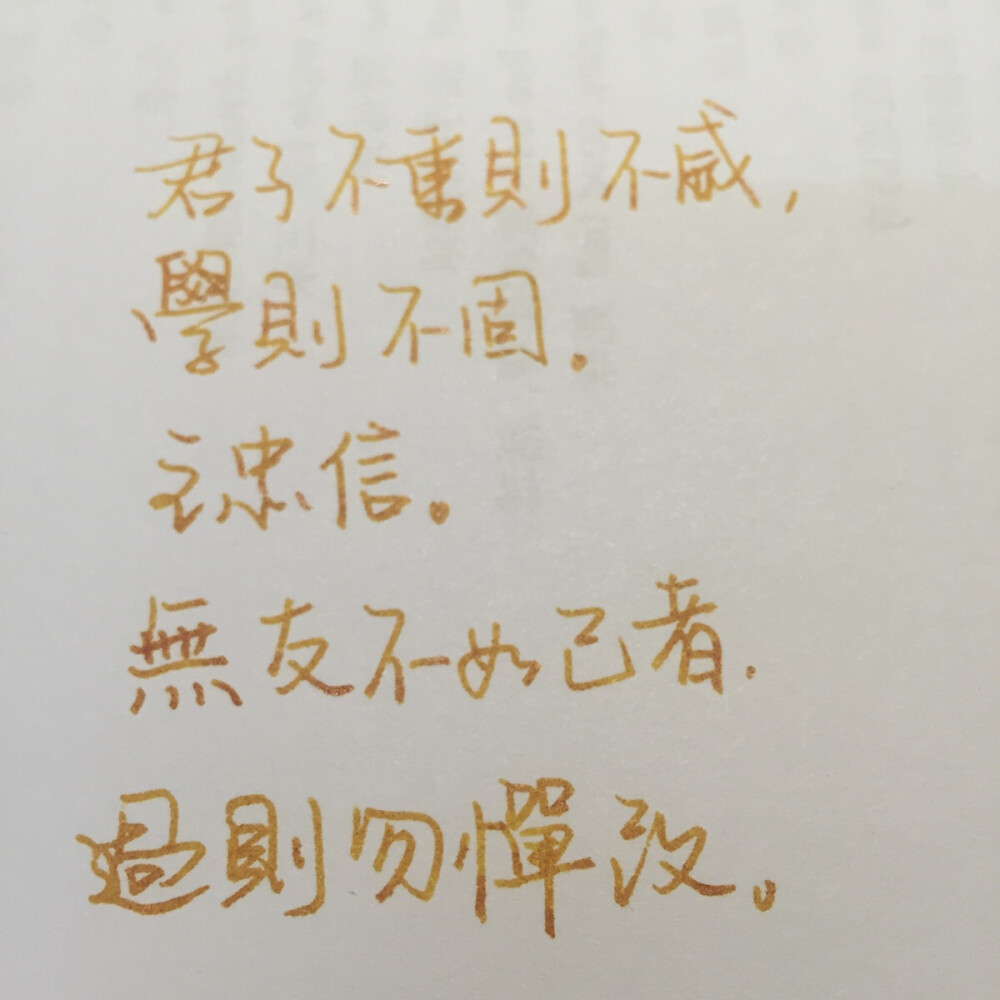 君子不重則不威,
學則不固。
主忠信。
無友不如己者.
過則勿憚改。